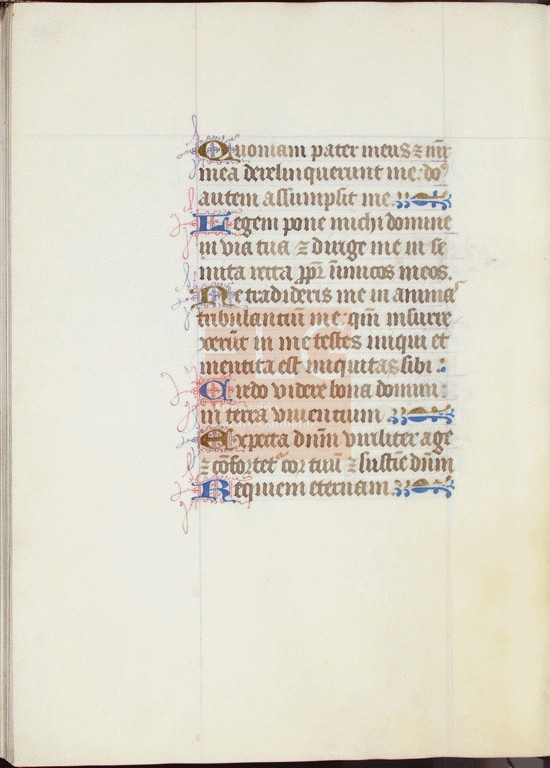 Quoniam pater meus ⁊ mr̄
mea derelinquerunt me: do⁹
autem assumpsit me.
Legem pone michi domine
in via tua ⁊ dirige me in se
mita recta ꝓpt̄ īimicos meos.
Ne tradideris me in animas
tribulantiū me: qm̄ insurre
xerūt in me testes iniqui et
mentita est iniquitas sibi:
Credo videre bona domini:
in terra viuentium
Expecta dn̄m viriliter age
⁊ cōfortet᷑ cor tuū ⁊ sustīe dn̄m
Requiem eternam.